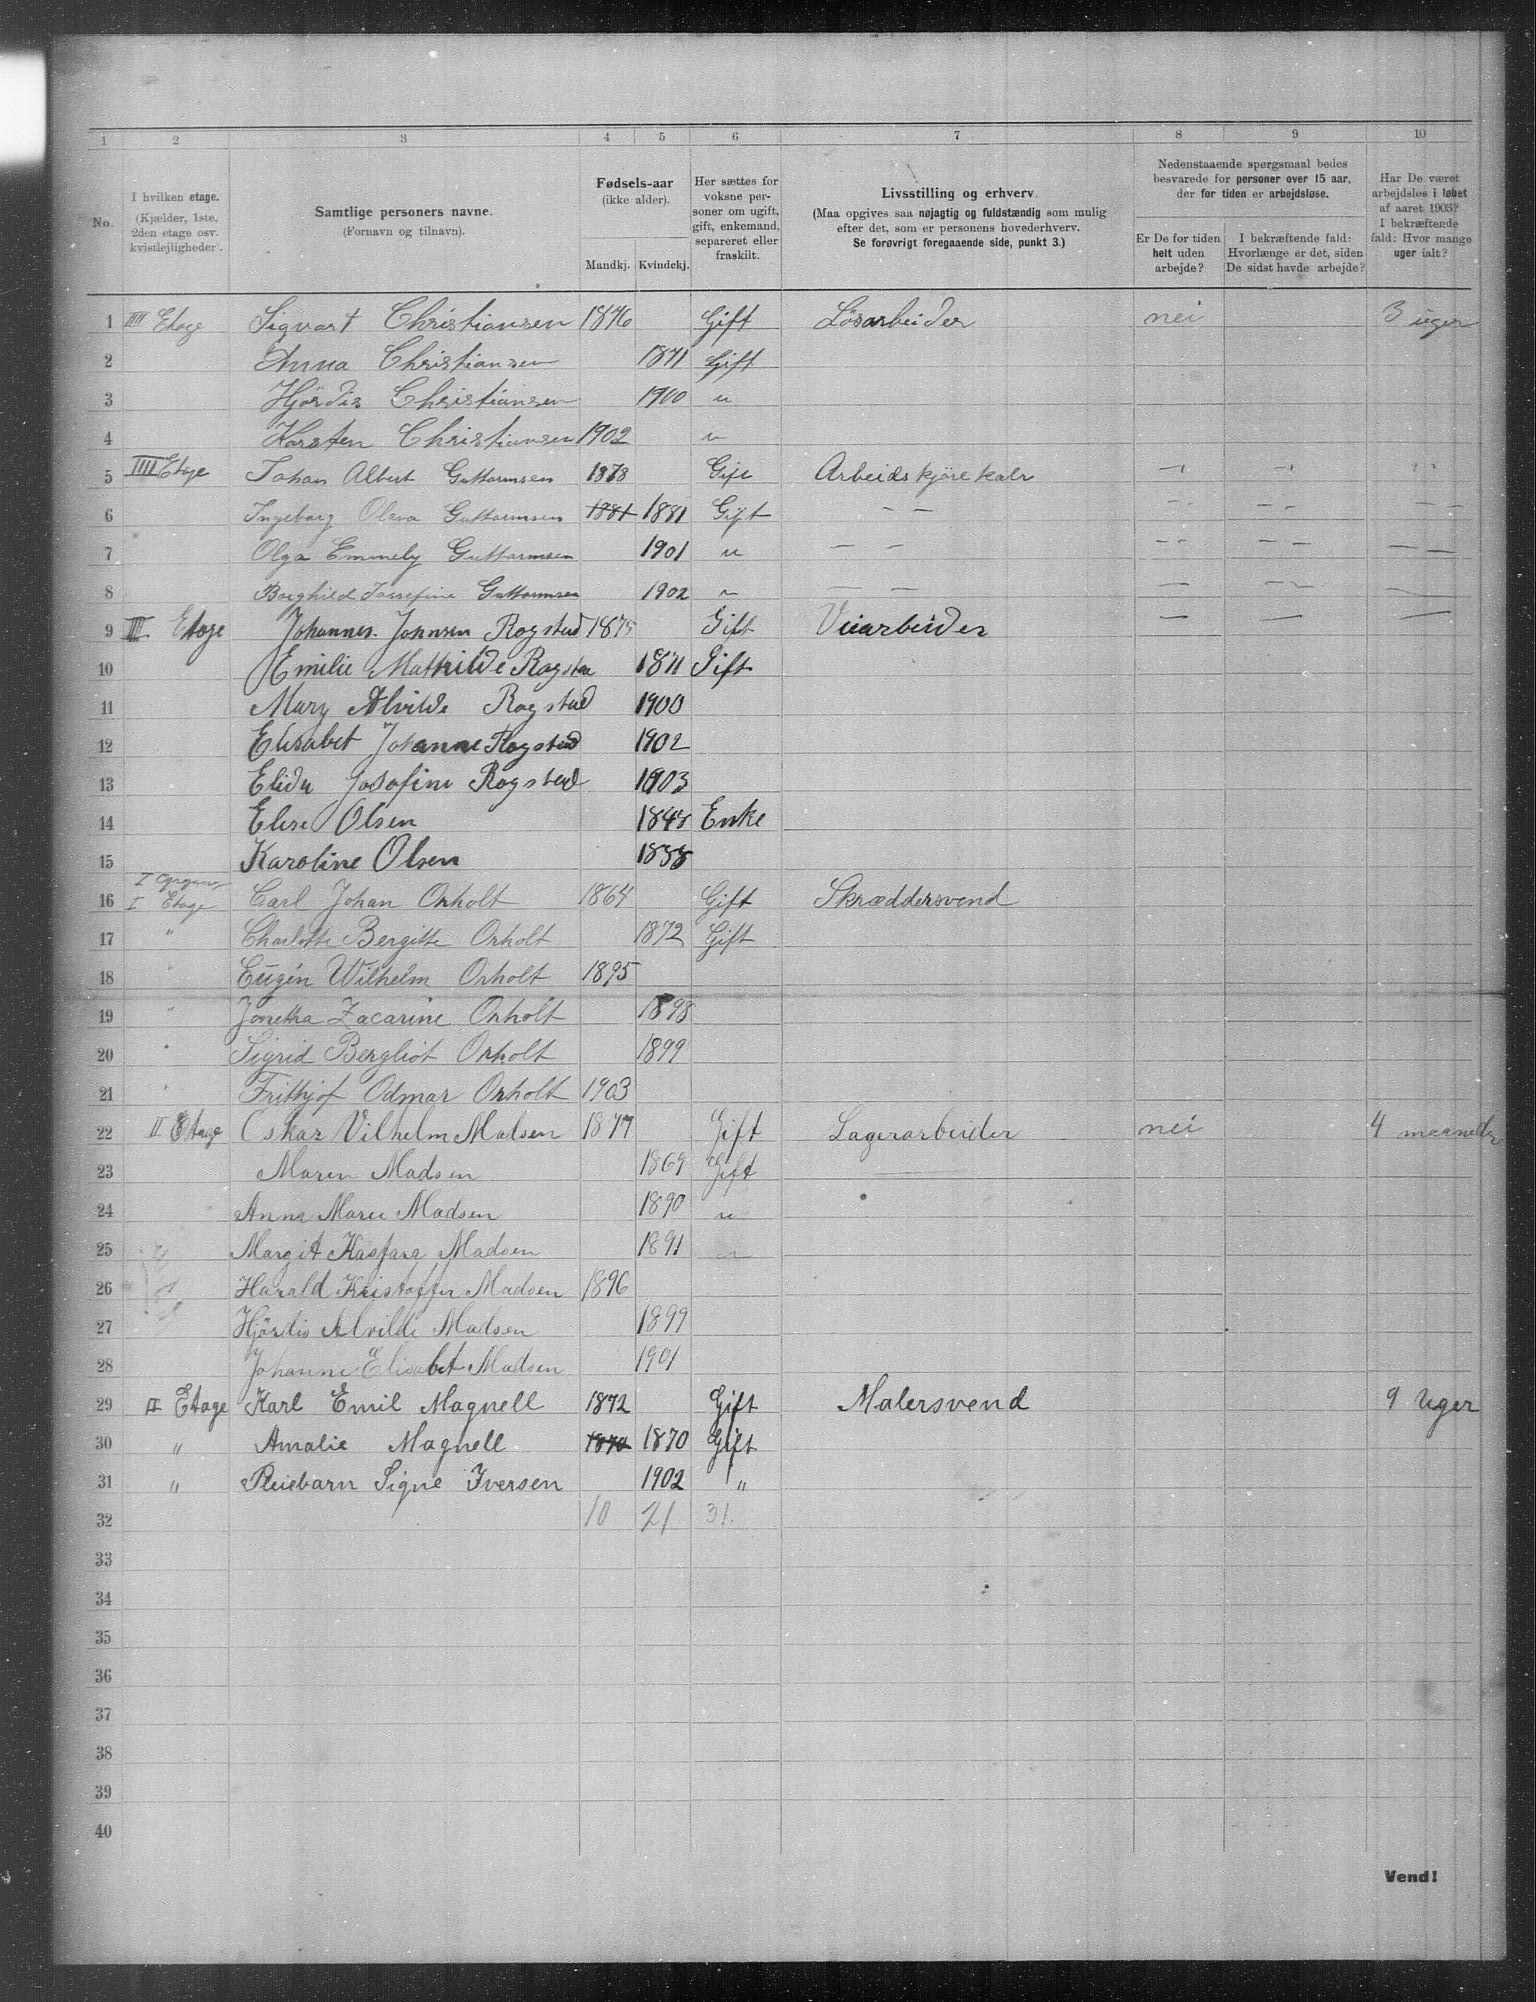 1 2 3 4 5 6 7 8 9 10
No.
I hvilken etage.
(Kjælder, 1ste,
2den etage osv.
kvistlejligheder).
Samtlige personers navne.
(Fornavn og tilnavn).
Fødsels-aar
(ikke alder).
Mandkj. Kvindekj.
Her sættes for
voksne per-
soner om ugift,
gift, enkemand,
separeret eller
fraskilt.
Livsstilling og erhverv.
(Maa opgives saa nøjagtig og fuldstændig som mulig
efter det, som er personens hovederhverv.
Se forøvrigt foregaaende side, punkt 3.)
Nedenstaaende spørgsmaal bedes
besvarede for personer over 15 aar,
der for tiden er arbejdsløse.
Er De for tiden
helt uden
arbejde?
I bekræftende fald:
Hvorlænge er det, siden
De sidst havde arbejde?
Har De været
arbejdsløs i løbet
af aaret 1903?
I bekræftende
fald: Hvor mange
uger ialt?
1 IIII Etage Sigvart Christiansen 1876 Gift Løsarbeider nei 3 uger
2 Anna Christiansen 1871 Gift
3 Hjördis Christiansen 1900 u
4 Karsten Christiansen 1902 u
5 IIII Etage Johan Albert Guttormsen 1873 Gift Arbeidskjörekalr — — "
6 Ingeborg Olava Guttormsen 1881 1881 Gift — — — — — —
7 Olga Emmely Guttormsen 1901 u — — — — — — — —
8 Borghild Jossefine Guttormsen 1902 u — — — — — —
9 III Etage Johannes Johnsen Rogstad 1875 Gift Veiarbeider — — —
10 Emilie Mathilde Rogstad 1871 Gift
11 Mary Alvilde Rogstad 1900
12 Elisabet Johanne Rogstad 1902
13 Elida Josofine Rogstad 1903
14 Elise Olsen 1848 Enke
15 Karoline Olsen 1888
I Opgang
16 I Etage Carl Johan Orholt 1864 Gift Skræddersvend
17 " Charlotte Bergitte Orholt 1872 Gift
18 " Eugén Wilhelm Orholt 1895
19 " Jonetha Zacarine Orholt 1898
20 " Sigrid Bergliot Orholt 1899
21 " Frithjof Odmar Orholt 1903
22 II Etage Oskar Vilhelm Madsen 1877 Gift Lagerarbeider nei 4 maaneder
23 Maren Madsen 1869 Gift
24 Anna Marie Madsen 1890 u
25 Margit Kaspara Madsen 1891 u
26 Harald Kristoffer Madsen 1896
27 Hjördis Alvilde Madsen 1899
28 Johanne Elisabet Madsen 1901
29 II Etage Karl Emil Magnell 1872 Gift Malersvend 9 Uger
30 " Amalie Magnell 1870 1870 Gift
31 " Pleiebarn Signe Iversen 1902 "
32 10 21 31.
33
34
35
36
37
38
39
40
Vend!